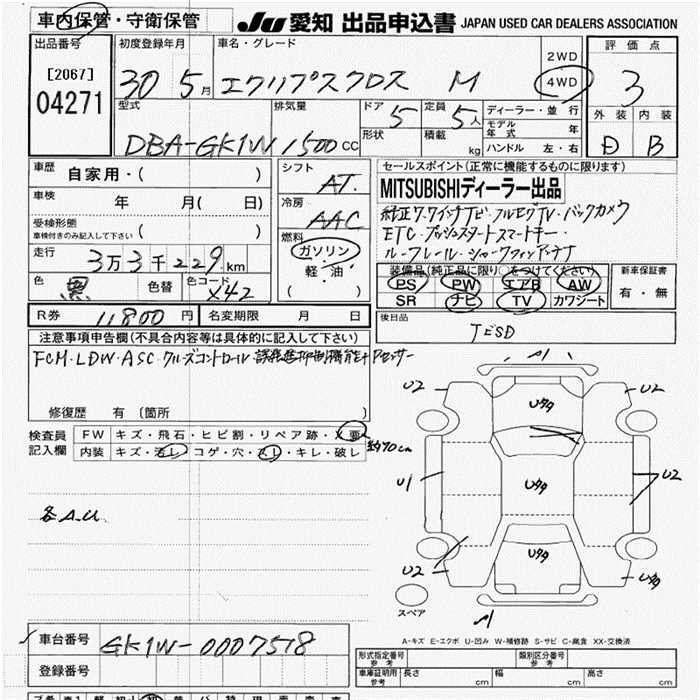 車内保管・守衛保管
JU 愛知 出品申込書 JAPAN USED CAR DEALERS ASSOCIATION
出品番号 初度登録年月 車名・グレード 評価点
[2067] 30 5月 エクリプスクロス M 2WD 4WD 3
04271
型式 排気量 ドア 5 定員 5人 ディーラー・並行 外装 内装
モデル年式
DBA-GK1W 1500 CC 形状 積載 kg ハンドル 左・右 D B
車歴 自家用・( ) シフト AT. セールスポイント(正常に機能するものに限ります)
車検 年 月( 日) 冷房 AAC MITSUBISHIディーラー出品
受検形態 ( ) 純正7.7インチTビ・フルセグTV・バックカメラ
車検付きのみ記入して下さい 燃料 ETC・プッシュスタートスマートキー・
走行 3万3千229km ガソリン ルーフレール・シャークフィンアンテナ
軽・油・ 装備品(純正品に限り○をつけてください) 新車保証書
色 黒 色替 色コード X42 ( ) PS PW エアB AW 有・無
SR ナビ TV カワシート
R券 11800円 名変期限 月 日 後日品
注意事項申告欄(不具合内容等は具体的に記入して下さい) TESD
FCM・LDW・ASC・クルーズコントロール 誤発進抑制機能+Pセンサー
修復歴 有 〔箇所 〕
検査員記入欄 FW キズ・飛石・ヒビ割・リペア跡・X要
内装 キズ・汚レ・コゲ・穴・スレ・キレ・破レ 約70cm
各A.U
A1
U2 U2
Uタタ
U1 Uタタ U2
Uタタ
U2
スペア A1
A-キズ E-エクボ U-凹み W-補修跡 S-サビ C-腐食 XX-交換済
車台番号 GK1W-0007518
登録番号
形式指定番号 参考 類別区分番号 参考
車庫証明用 参考 長さ cm 幅 cm 高さ cm